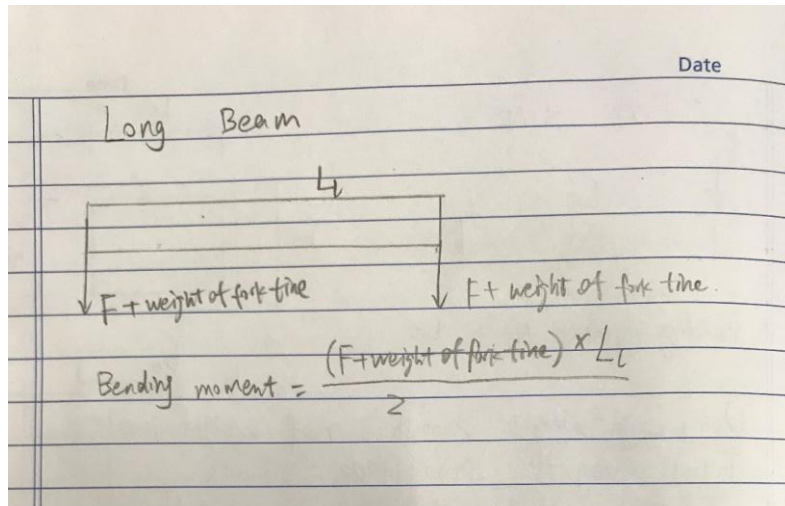 Date
Long Beam
L_l
F + weight of fork tine
F + weight of fork tine.
Bending moment = (F + weight of fork tine) × L_l / 2